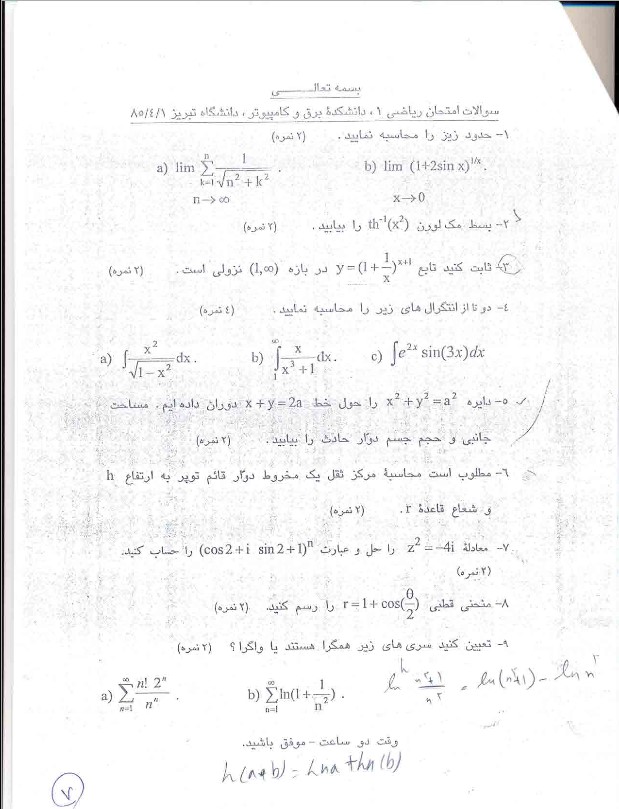 بسمه تعالـــــی
سوالات امتحان ریاضی ۱ ، دانشکدهٔ برق و کامپیوتر ، دانشگاه تبریز ۸۵/٤/۱
۱- حدود زیر را محاسبه نمایید . (۲ نمره)
a) lim ∑_{k=1}^{n} 1/√(n² + k²) . b) lim (1+2sin x)^{1/x}.
n→∞ x→0
۲- بسط مک لورن th⁻¹(x²) را بیابید . (۲ نمره)
۳- ثابت کنید تابع y=(1+1/x)^{x+1} در بازه (1,∞) نزولی است . (۲ نمره)
٤- دو تا از انتگرال های زیر را محاسبه نمایید . (٤ نمره)
a) ∫ x²/√(1−x²) dx . b) ∫_{1}^{∞} x/(x³+1) dx . c) ∫e^{2x} sin(3x)dx
۵- دایره x²+y²=a² را حول خط x+y=2a دوران داده ایم . مساحت
جانبی و حجم جسم دوّار حادث را بیابید . (۲ نمره)
٦- مطلوب است محاسبهٔ مرکز ثقل یک مخروط دوّار قائم توپر به ارتفاع h
و شعاع قاعدهٔ r . (۲ نمره)
۷- معادلهٔ z²=−4i را حل و عبارت (cos2+i sin2+1)ⁿ را حساب کنید.
(۲ نمره)
۸- منحنی قطبی r=1+cos(θ/2) را رسم کنید. (۲ نمره)
۹- تعیین کنید سری های زیر همگرا هستند یا واگرا ؟ (۲ نمره)
a) ∑_{n=1}^{∞} n! 2ⁿ/nⁿ . b) ∑_{n=1}^{∞} ln(1+1/n²) .
= ln(n²+1) − ln n²
وقت دو ساعت – موفق باشید.
۷